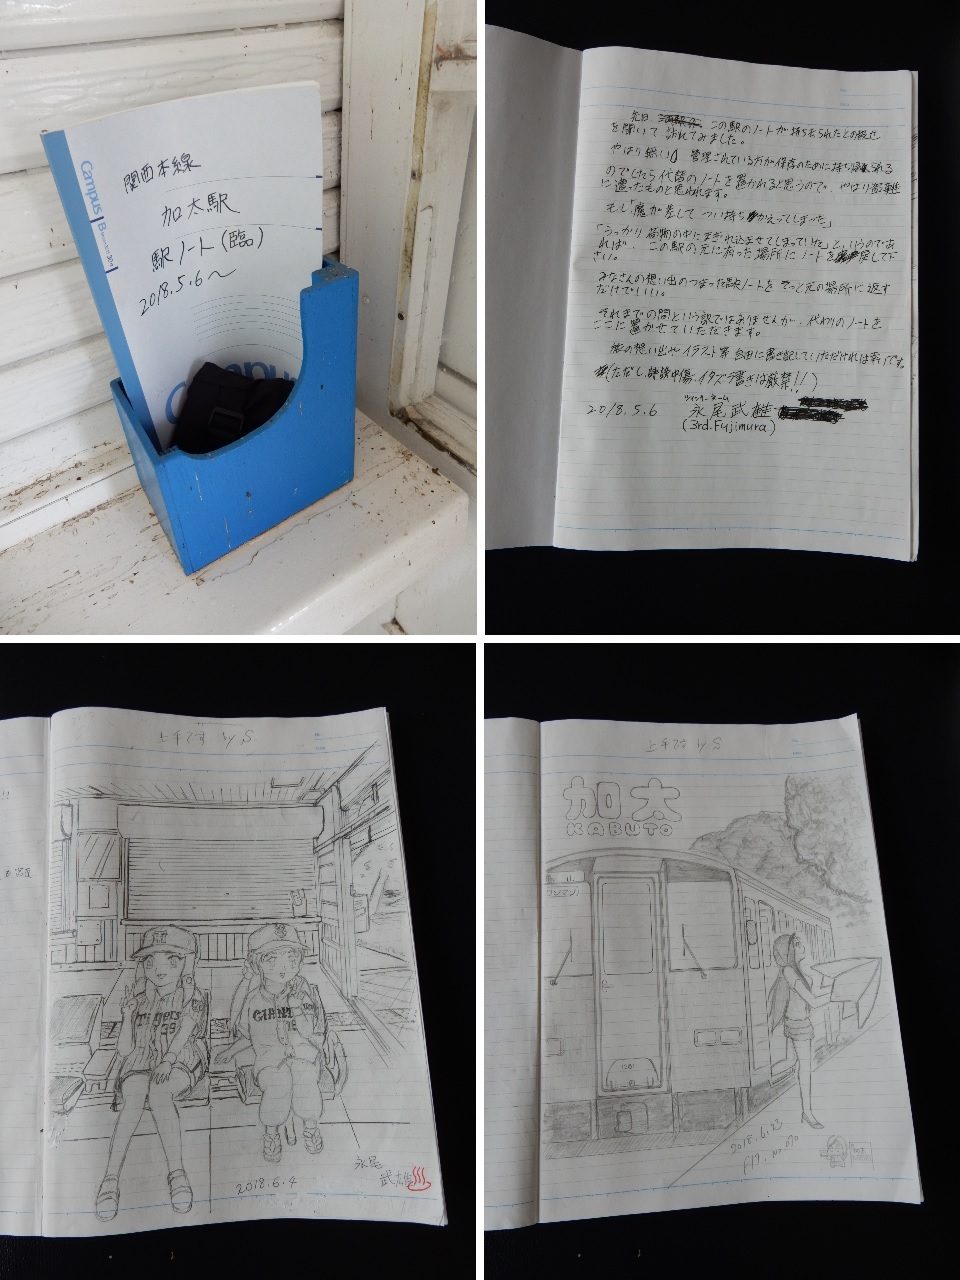 Campus
B
関西本線
加太駅
駅ノート(臨)
2018.5.6〜
Campus
先日、この駅のノートが持ち去られたとの報せ
を聞いて訪れてみました。
やはり無い
管理されている方が保存のために持ち帰られる
のでしたら代替のノートを置かれると思うので、やはり
に遭ったものと思われます。
もし「魔が差してつい持ちかえってしまった」
「うっかり荷物の中にまぎれ込ませてしまっていた」というのであ
れば、この駅の元に有った場所にノートを戻して下
さい。
みなさんの想い出のつまった駅ノートをそっと元の場所に返す
だけでいい。
それまでの間という訳ではありませんが、代わりのノートを
ここに置かせていただきます。
旅の想い出やイラスト等自由に書き記していただければ幸いです。
(ただし、誹謗中傷・イタズラ書きは厳禁!!)
2018.5.6
永尾武雄
(3rd.Fujimura)
上手です by S
!!
Tigers
39
GIANTS
18
2018.6.4
永尾
武雄
上手です by S
加太
KABUTO
ワンマン
2018.6.23